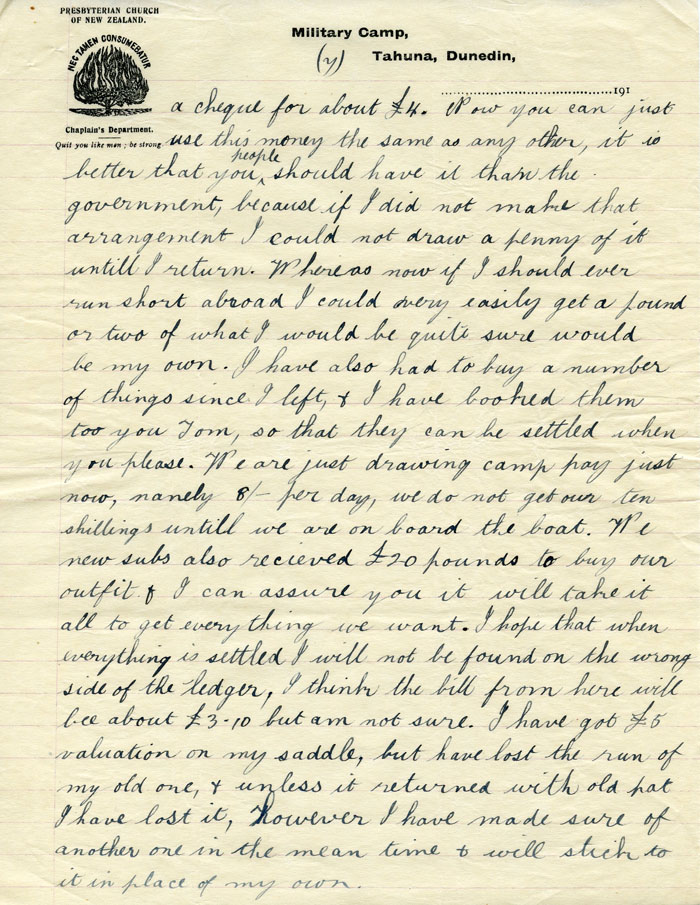 PRESBYTERIAN CHURCH
OF NEW ZEALAND.
NEC TAMEN CONSUMEBATUR
Chaplain's Department.
Quit you like men; be strong
Military Camp,
(y) Tahuna, Dunedin,
191
a cheque for about £4. Now you can just
use this money the same as any other, it is
better that you people should have it than the
government, because if I did not make that
arrangement I could not draw a penny of it
untill I return. Whereas now if I should ever
run short abroad I could very easily get a pound
or two of what I would be quite sure would
be my own. I have also had to buy a number
of things since I left, & I have booked them
too you Tom, so that they can be settled when
you please. We are just drawing camp pay just
now, nanely 8/- per day, we do not get our ten
shillings untill we are on board the boat. We
new subs also recieved £20 pounds to buy our
outfit & I can assure you it will take it
all to get everything we want. I hope that when
everything is settled I will not be found on the wrong
side of the ledger, I think the bill from here will
bee about £3-10 but am not sure. I have got £5
valuation on my saddle, but have lost the run of
my old one, & unless it returned with old pat
I have lost it, However I have made sure of
another one in the mean time & will stick to
it in place of my own.